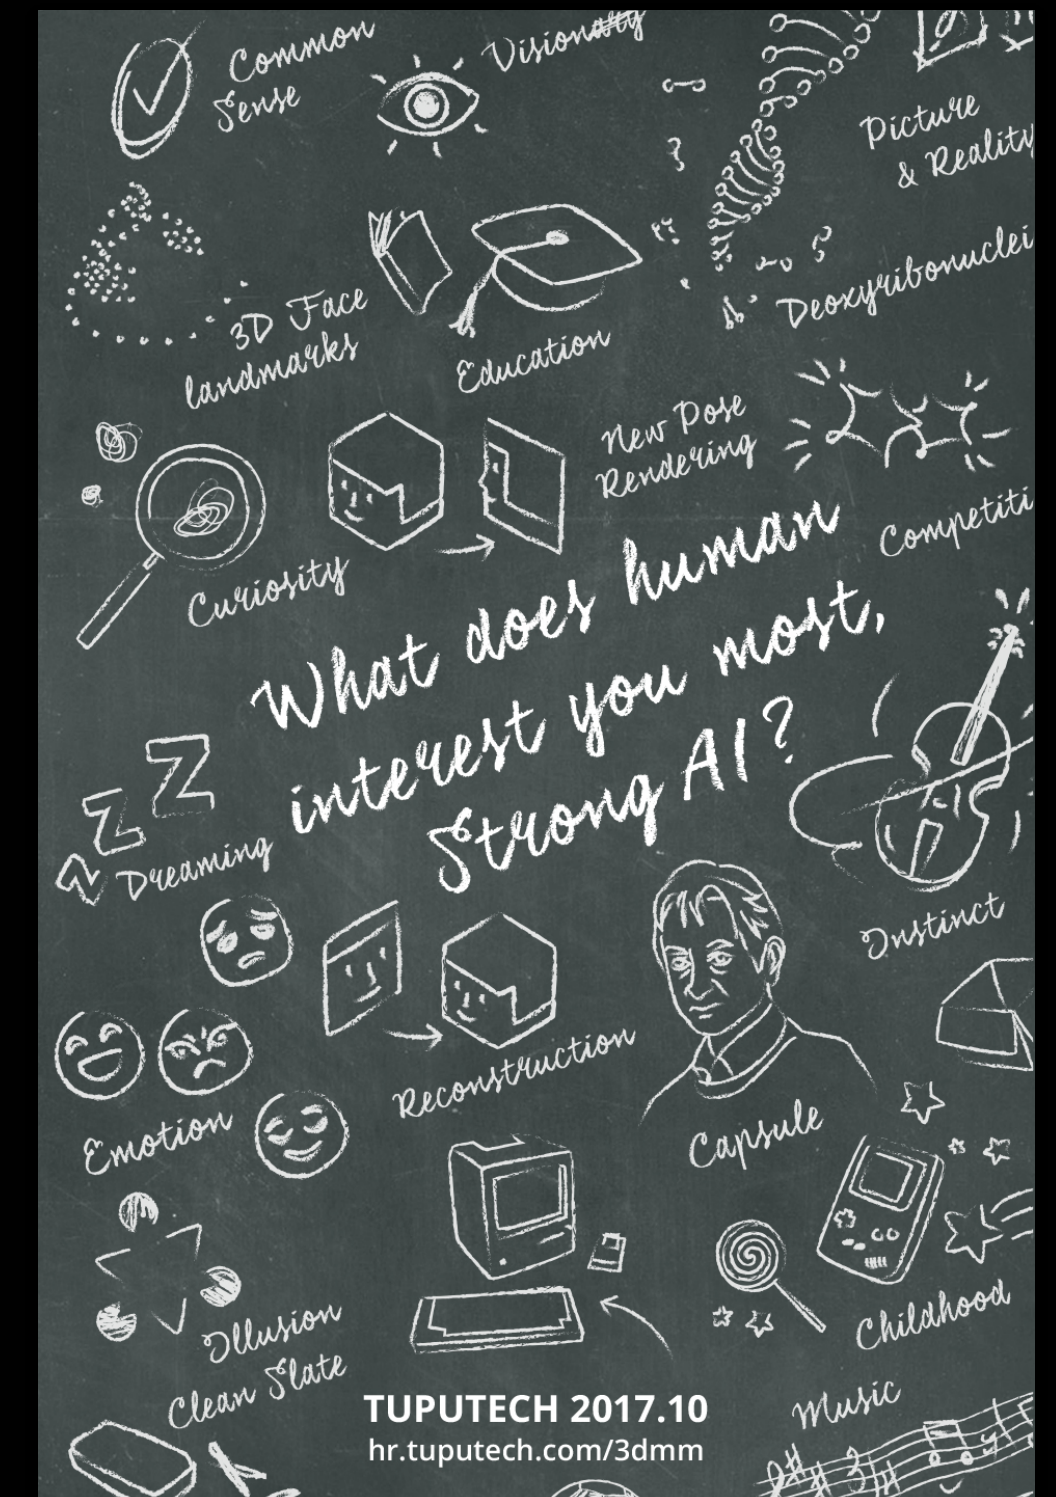 Common
Sense
Visionary
Picture
& Reality
3D Face
landmarks
Education
Deoxyribonuclei
New Pose
Rendering
Competiti
Curiosity
What does human
interest you most,
Strong AI?
z Z Z
Dreaming
Instinct
Reconstruction
Emotion
Capsule
Illusion
Childhood
Clean Slate
Music
TUPUTECH 2017.10
hr.tuputech.com/3dmm